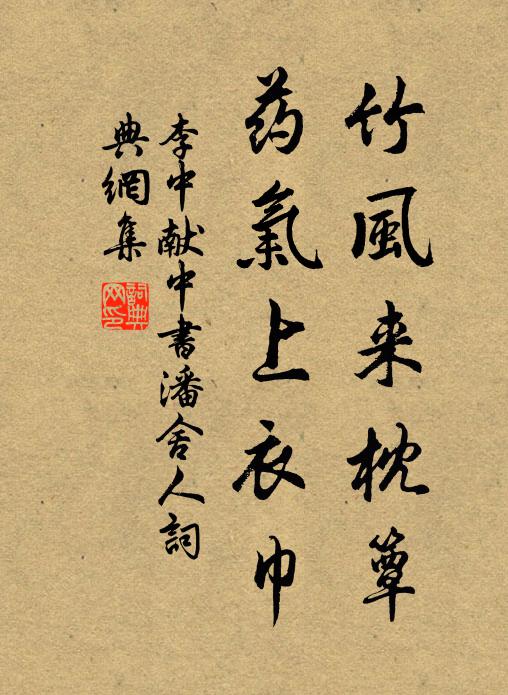 竹風来枕簟
药氣上衣巾
李中献中書潘舍人詞
典網集
詞典网印